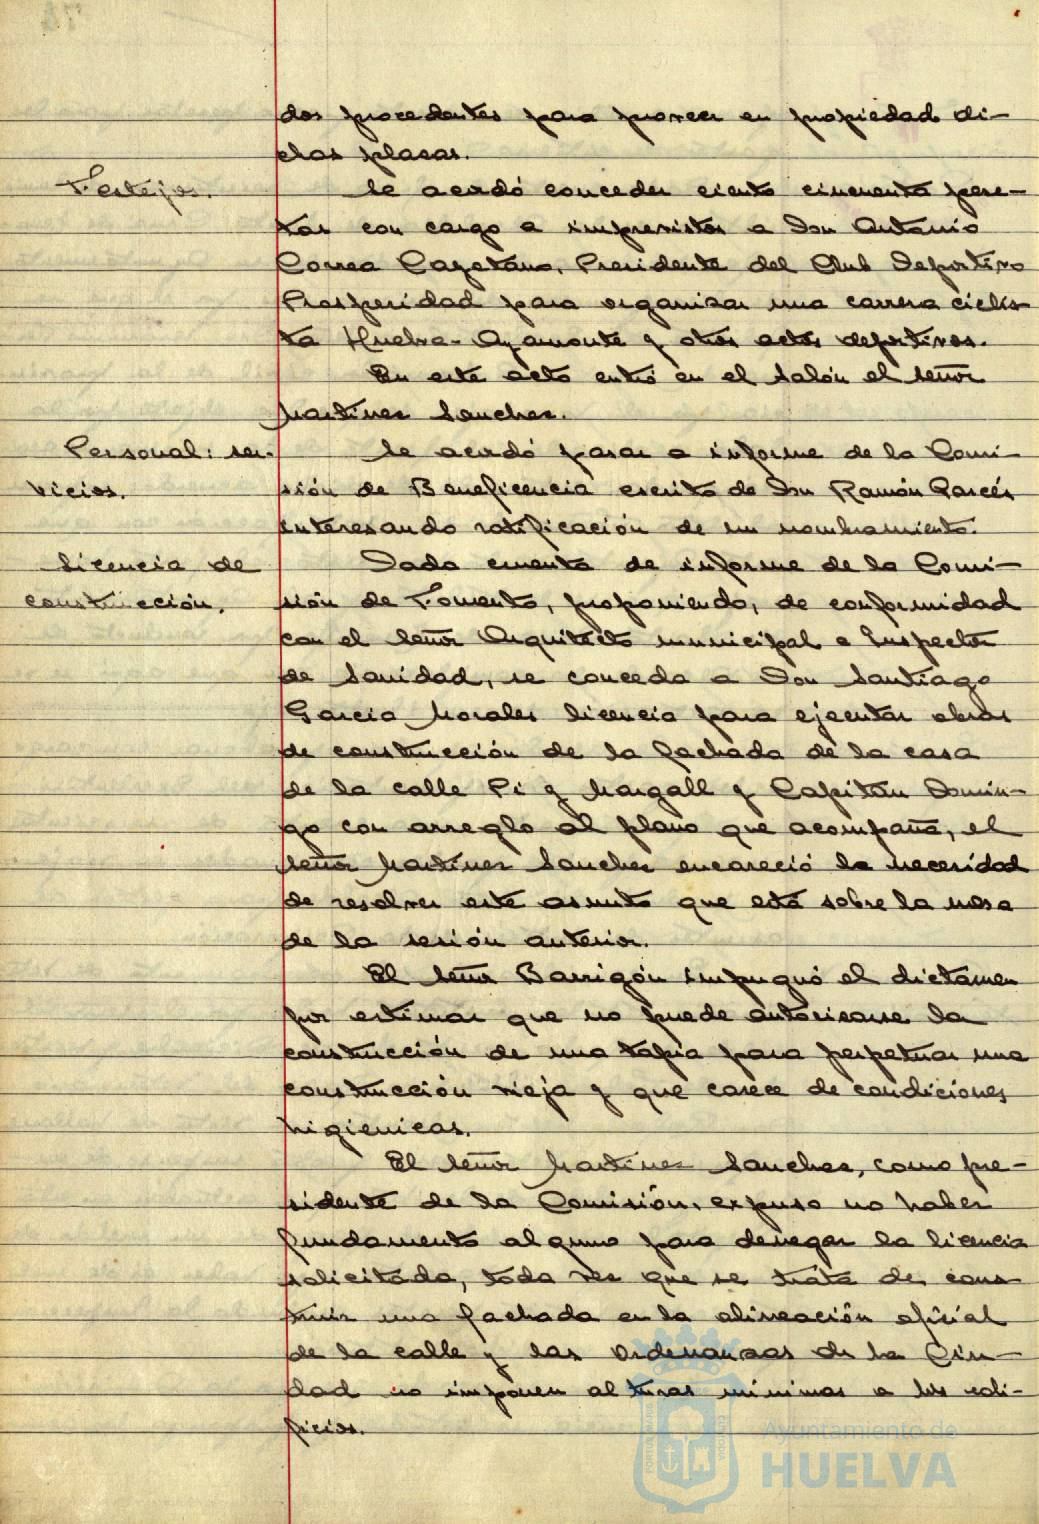 dos procedentes para proveer en propiedad di-
chas plazas.
Festejos.
Se acordó conceder ciento cincuenta pese-
tas con cargo a imprevistos a Don Antonio
Correa Cayetano, Presidente del Club Deportivo
Prosperidad para organizar una carrera ciclis-
ta Huelva-Ayamonte y otros actos deportivos.
En este acto entró en el salón el señor
Martínez Sanchez.
Personal: ser-
vicios.
Se acordó pasar a informe de la Comi-
sión de Beneficencia escrito de Don Ramón Garcés
interesando ratificación de su nombramiento.
Licencia de
construcción.
Dada cuenta de informe de la Comi-
sión de Fomento, proponiendo, de conformidad
con el señor Arquitecto municipal e Inspector
de Sanidad, se conceda a Don Santiago
Garcia Morales licencia para ejecutar obras
de construcción de la fachada de la casa
de la calle Pi y Margall y Capitán Domin-
go con arreglo al plano que acompaña, el
señor Martínez Sanchez encareció la necesidad
de resolver este asunto que está sobre la mesa
de la sesión anterior.
El señor Barrigón impugnó el dictamen
por estimar que no puede autorizarse la
construcción de una tapia para perpetuar una
construcción vieja y que carece de condiciones
higienicas.
El señor Martínez Sanchez, como pre-
sidente de la Comisión, expuso no haber
fundamento alguno para denegar la licencia
solicitada, toda vez que se trata de cons-
truir una fachada en la alineación oficial
de la calle y las Ordenanzas de la Ciu-
dad no imponen alturas mínimas a los edi-
ficios.
Ayuntamiento de
HUELVA